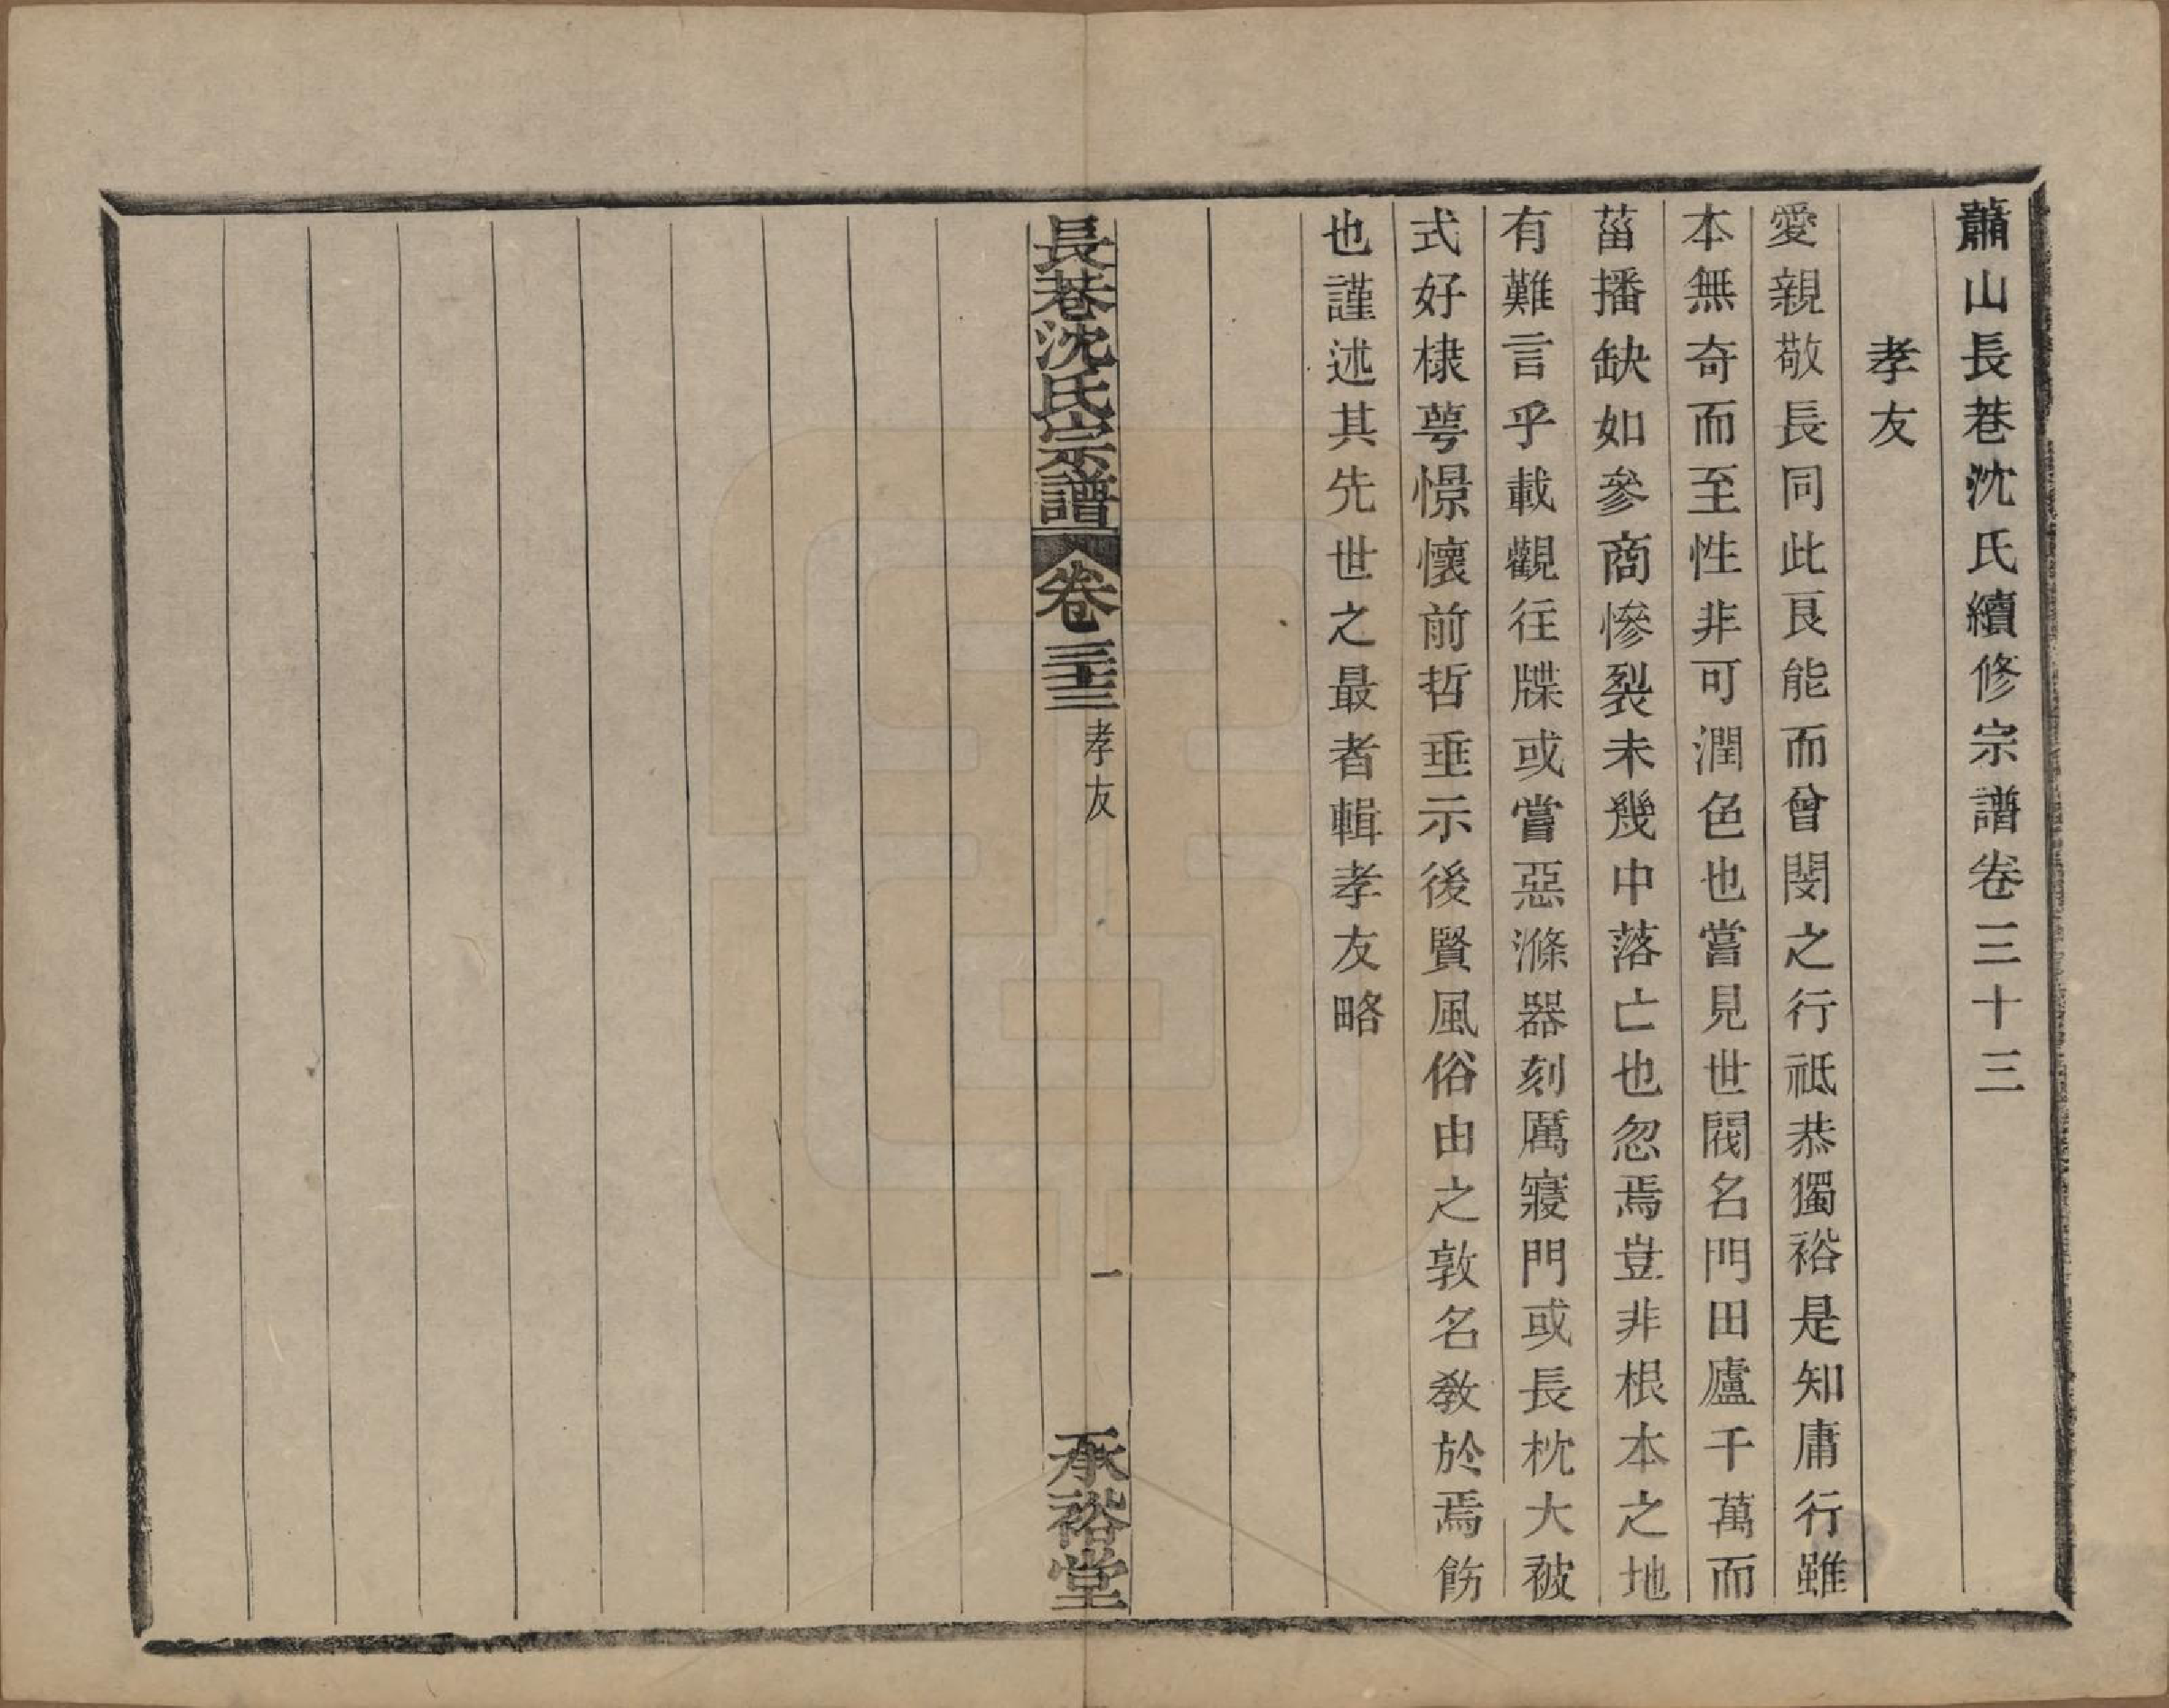 蕭山長巷沈氏續修宗譜卷三十三
孝友
愛親敬長同此良能而曾閔之行祗恭獨裕是知庸行雖
本無奇而至性非可潤色也嘗見世閥名門田廬千萬而
菑播缺如參商慘裂未幾中落亡也忽焉豈非根本之地
有難言乎載觀往牒或嘗惡滌器刻厲寢門或長枕大被
式好棣萼憬懷前哲垂示後賢風俗由之敦名教於焉飭
也謹述其先世之最者輯孝友略
長巷沈氏宗譜
卷三十三
孝友
一
承裕堂